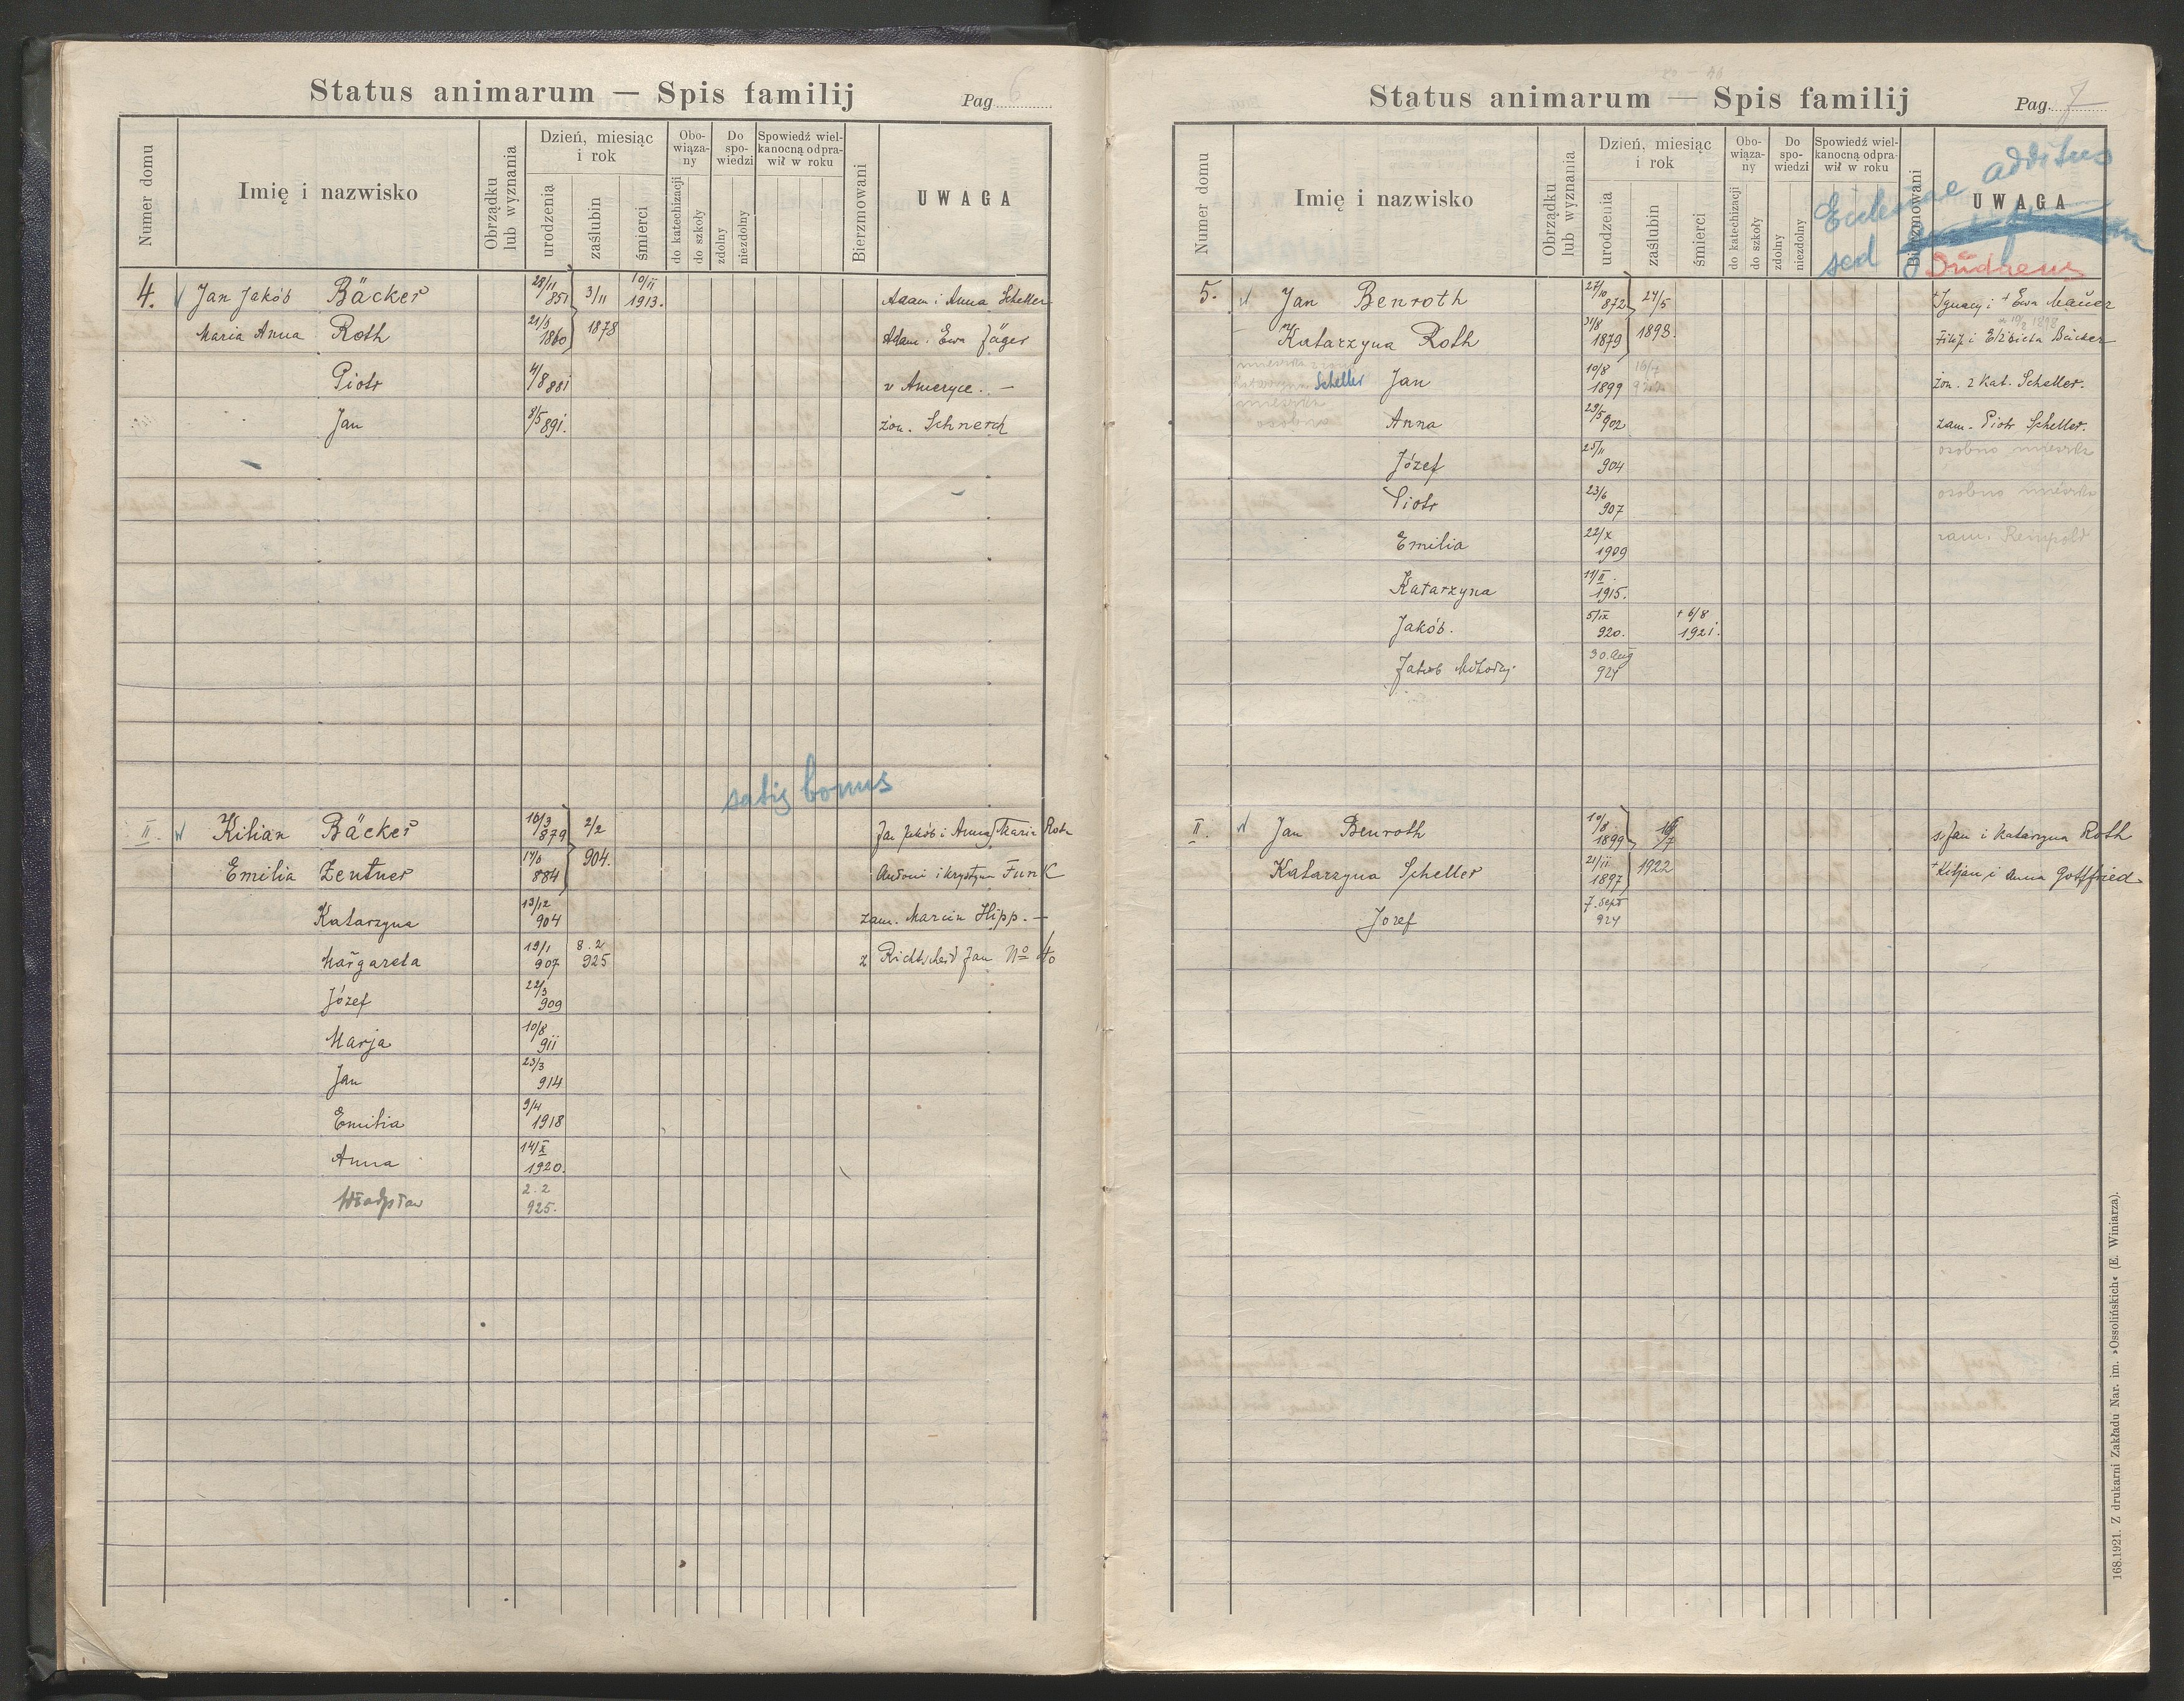 Status animarum — Spis familij
Pag. 6
Numer domu
Imię i nazwisko
Obrządku lub wyznania
Dzień, miesiąc i rok
urodzenia
zaślubin
śmierci
Obowiązany
do katechizacji
do szkoły
Do spowiedzi
zdolny
niezdolny
Spowiedź wielkanocną odprawił w roku
Bierzmowani
UWAGA
4. Jan Jakób Bäcker 28/11 851 3/11 1878 10/II 1913. Adam i Anna Scheller
Maria Anna Roth 21/3 1860 Adam i Ewa Jäger
Piotr 4/8 881 w Ameryce. —
Jan 8/5 891. żon. Schnerch
satis bonus
II. Kilian Bäcker 16/3 879 2/2 904. Jan Jakób i Anna Maria Roth
Emilia Zentner 884 Antoni i Krystyna Funk
Katarzyna 13/12 904 zam. Marcin Hipp. —
Margareta 19/1 907 8.2 925 z Richtscheid Jan No 40
Józef 22/3 909
Marja 10/8 911
Jan 23/3 914
Emilia 9/4 1918
Anna 14/X 1920.
Władysław 2.2 925.
Status animarum — Spis familij
Pag. 7
Numer domu
Imię i nazwisko
Obrządku lub wyznania
Dzień, miesiąc i rok
urodzenia
zaślubin
śmierci
Obowiązany
do katechizacji
do szkoły
Do spowiedzi
zdolny
niezdolny
Spowiedź wielkanocną odprawił w roku
Bierzmowani
UWAGA
Ecclesiae additus
sed
5. Jan Benroth 27/10 872 24/5 1898. † Ignacy i † Ewa Mauer
Katarzyna Roth 31/8 1879 Filip i Elżbieta Bäcker
Scheller Jan 10/8 1899 żon. z Kat. Scheller.
Anna 29/5 902 zam. Piotr Scheller.
Józef 25/11 904 osobno mieszka
Piotr 23/6 907 osobno mieszka
Emilia 22/X 1909 zam. Rempold
Katarzyna 11/II. 1915.
Jakób. 5/IX 920. † 6/8 1921.
Jakob Mikołaj 30. Aug 927
II. Jan Benroth 10/8. 1899 16/7 1922 s. Jan i Katarzyna Roth
Katarzyna Scheller 21/11 1897 † Kiljan i Anna Gottfried
Jozef 7. Sept 924
168.1921. Z drukarni Zakładu Nar. im. »Ossolińskich« (E. Winiarza).